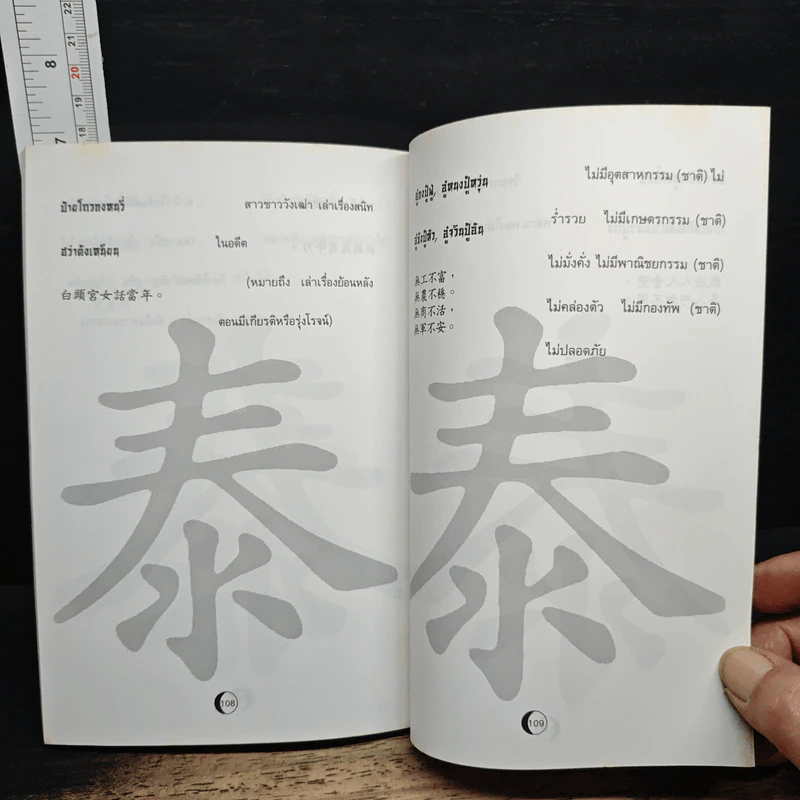 8
7
22
21
20
19
18
17
ป๋ายโถวกงหนวี่
สาวชาววังเฒ่า เล่าเรื่องสนิท
ฮว่าตังเหนียน
ในอดีต
(หมายถึง เล่าเรื่องย้อนหลัง
白頭宮女話當年。
ตอนมีเกียรติหรือรุ่งโรจน์)
泰
108
อู๋กงปู๋ฟู่, อู๋หนงปู้หวุ่น
ไม่มีอุตสาหกรรม (ชาติ) ไม่
ร่ำรวย ไม่มีเกษตรกรรม (ชาติ)
ไม่มั่งคั่ง ไม่มีพาณิชยกรรม (ชาติ)
無工不富，
無農不穩。
無商不活，
ไม่คล่องตัว ไม่มีกองทัพ (ชาติ)
無軍不安。
ไม่ปลอดภัย
泰
109